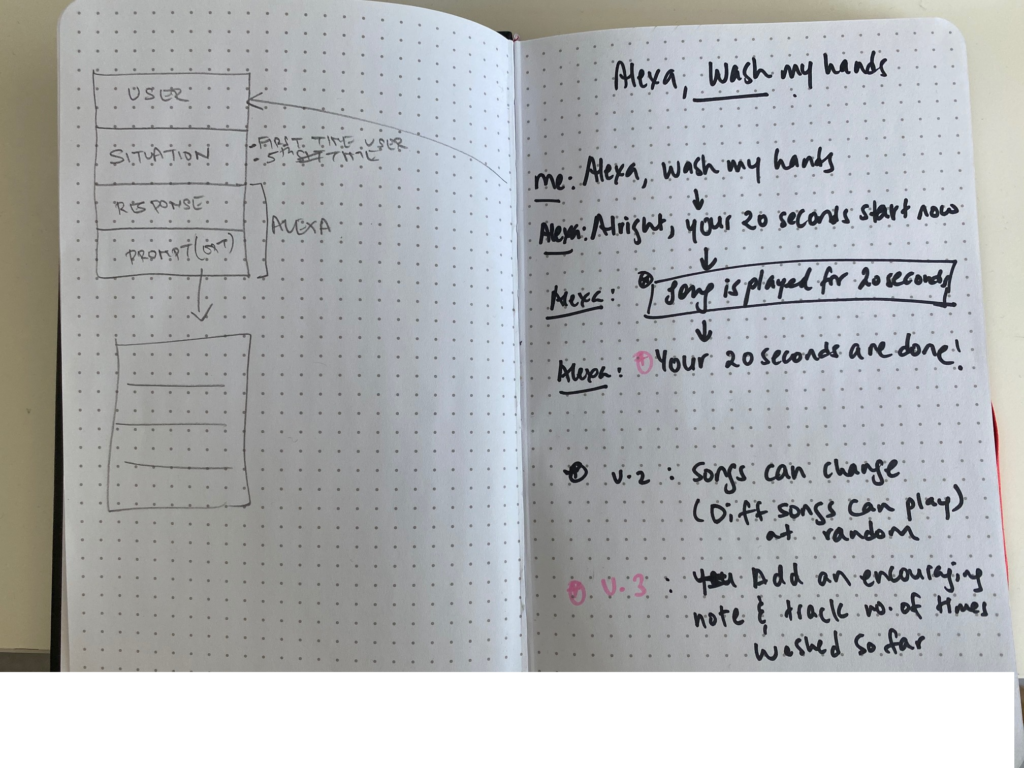 USER
SITUATION
- FIRST TIME USER
RESPONSE
PROMPT
ALEXA
Alexa, Wash my hands
me: Alexa, wash my hands
Alexa: Alright, your 20 seconds start now
Alexa: Song is played for 20 seconds
Alexa: Your 20 seconds are done!
V.2 : Songs can change
(Diff songs can play)
at random
V.3 : Add an encouraging
note & track no. of times
washed so far